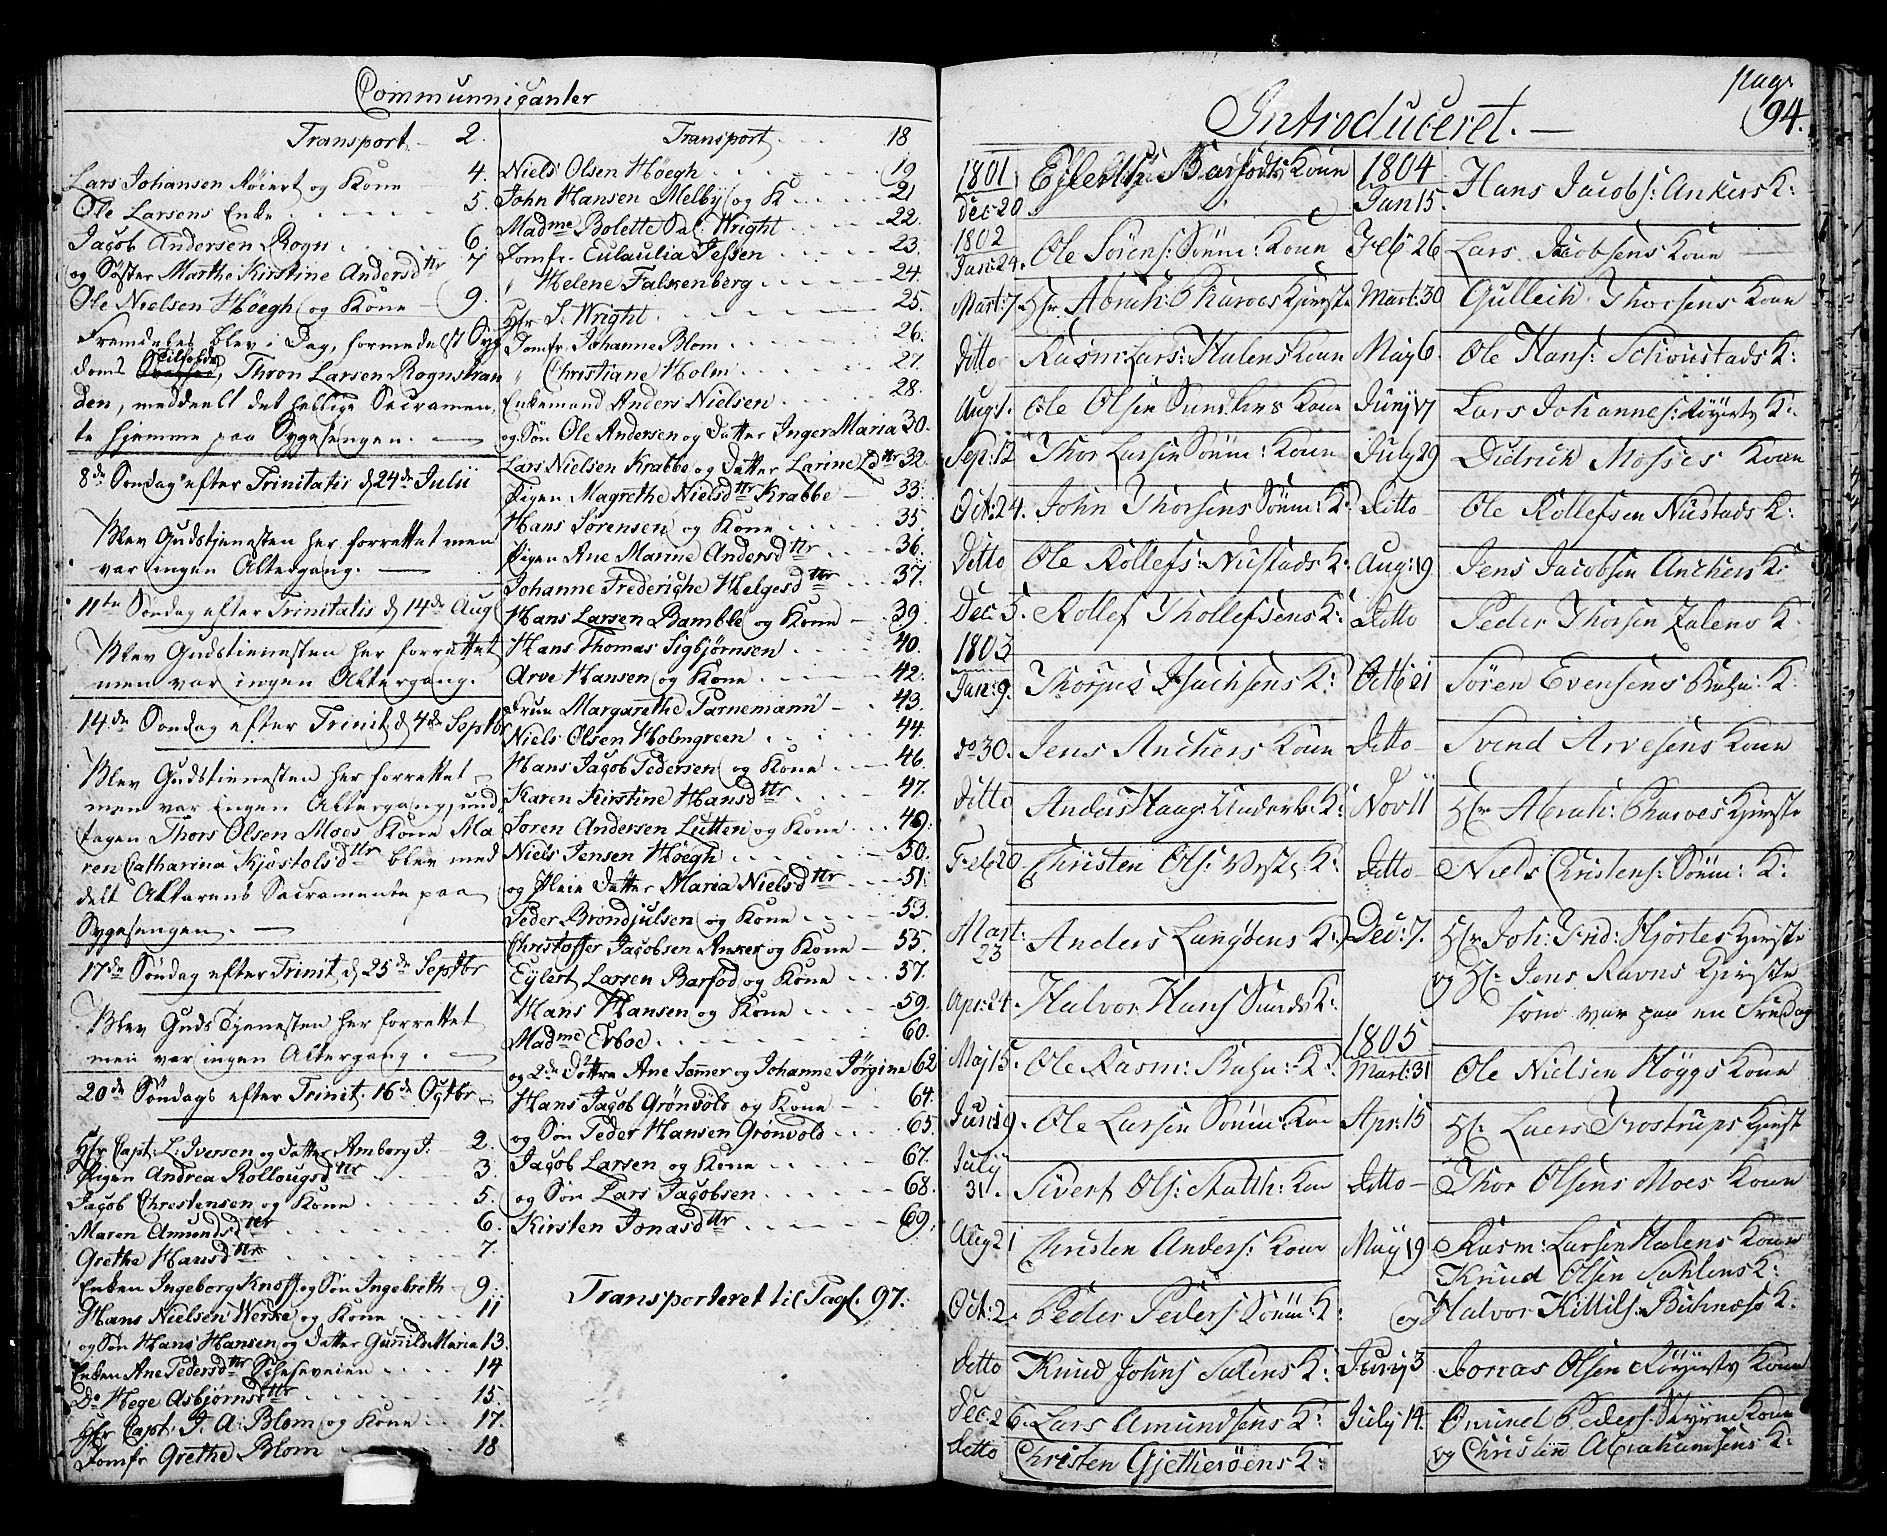 Communniçanter
Transport 2.
Lars Johansen Røiert og Kone 4.
Ole Larsens Enke 5.
Jacob Andersen Rogn 6.
og Søster Marthe Kirstine Andersdttr 7
Ole Nielsen Höegh og Kone 9.
Fremdeles blev i Dag, formedelst Syg
doms Tilfelde, Thron Larsen Rognstran
den, meddeelt det hellige Sacramen,
te hjemme paa Sygesengen.
8de Søndag efter Trinitatis d 24de Julii
Blev Gudstjenesten her forrettet men
var ingen Altergang.
11te Søndag efter Trinitatis d 14de Aug
Blev Gudstienesten her forrettet
men var ingen Altergang.
14de Søndag efter Trinit d 4de Septbr
Blev Gudstienesten her forrettet
men var ingen Altergang, und
tagen Thors Olsen Moes Kone Ma
ren Catharina Kjøstolsdttr blev med
delt Alterens Sacramente paa
Sygesengen.
17de Søndag efter Trinit d 25de Septbr
Blev Guds Tjenesten her forrettet
men var ingen Altergang.
20de Søndags efter Trinit. 16de Octbr
Hr Capt. L. Iversen og Datter Amborg J. 2.
Pigen Andrea Rollougsdttr 3.
Jacob Chrestensen og Kone 5.
Maren Amundsdttr 6.
Grethe Hansdttr 7.
Enken Ingeborg Knoff og Søn Ingebreth 9.
Hans Nielsen Werke og Kone 11
og Søn Hans Hansen og Datter Gunnild Maria 13.
Enken Ane Pedersdttr Scheseveien 14
Do Hege Asbjørnsdttr 15.
Hr Capt. J. A. Blom og Kone 17.
Jomfr Grethe Blom 18
Transport 18
Niels Olsen Höegh 19
John Hansen Melby og K 21
Madme Bolette Sal. Wright 22.
Jomfr. Eulaulia Jessen 23.
" Helene Falkenberg 24.
Hr S. Wright 25.
Jomfr. Johanne Blom 26.
" Christiane Holm 27.
Enkemand Anders Nielsen 28.
og Søn Ole Andersen og Datter Inger Maria 30.
Lars Nielsen Krabbe og Datter Larine Ldttr 32.
Pigen Magrethe Nielsdttr Krabbe 33.
Hans Sørensen og Kone 35.
Pigen Ane Marine Andersdttr 36.
Johanne Frederighe Helgesdttr 37.
Hans Larsen Bamble og Kone 39.
Hans Thomas Sigbjørnsen 40.
Arve Hansen og Kone 42.
Frue Margarethe Parnemann 43.
Niels Olsen Holmgreen 44.
Hans Jacob Pedersen og Kone 46.
Karen Kirstine Hansdttr 47.
Soren Andersen Lutten og Kone 49.
Niels Jensen Höegh 50.
og Pleie Datter Maria Nielsdttr 51.
Peder Brøndjulsen og Kone 53.
Christoffer Jacobsen Anker og Kone 55.
Eylert Larsen Barfod og Kone 57.
Hans Hansen og Kone 59.
Madme Erboe 60.
og 2de Døttre Ane Sommer og Johanne Jörgine 62
Hans Jacob Grønvold og Kone 64.
og Søn Peder Hansen Grønvold 65.
Jacob Larsen og Kone 67.
og Søn Lars Jacobsen 68.
Kirsten Jonasdttr 69.
Transporteret til Pagl. 97.
pag.
94.
Introduceret.
1801
Dec: 20 Ejlerts Barfods Kone
1802
Jan: 24. Ole Sörens: Sønm: Kone
Mart: 7. Hr. Abrah: Charves Hjerste
Ditto Rasm: Lars: Halens Kone
Aug: 1. Ole Olsen Kone
Sep: 12 Thor Larsen Sønm: Kone
Oct: 24. John Thorsens Sønm: K:
Ditto Ole Rollefs: Nustads K:
Dec: 5. Rollef Thollefsens K:
1803
Jan: 9. Isachsens K:
do 30. Jens Anchers Kone
Ditto Anders Haag K:
Feb 20 Christen Ols: K:
Mart: 23 Anders Langöens K:
Apr: 24. Halvor Hans Sunds K:
Maj 15. Ole Rasm: K:
Juni 19. Ole Larsen Sønm: Kone
July 31. Sivert Ols: Kone
Aug 21 Christen Anders: Kone
Oct: 2. Peder Peders Sønm: K:
Ditto Knud Johns Salens K:
Dec: 26. Lars Amundsens K:
Ditto Christen Gjetheröens K:
1804
Jan 15. Hans Jacobs: Ankers K:
Feb 26 Lars Jacobsens Kone
Mart: 30 Gulleich Thorsens Kone
May 6. Ole Hans: Schoustads K:
Junij 17 Lars Johannes: Röyerts K:
July 29 Didrick Moses Kone
Ditto Ole Rollefsen Nustads K:
Aug: 19 Jens Jacobsen Anchers K:
Ditto Peder Thorsen K:
Octb 21 Sören Evensens K:
Ditto Svend Arvesens Kone
Nov 11 Hr Abrah: Charves Hjerste
Ditto Niels Christens: Sønm: K:
Dec: 7. Hr Joh: Frid: Hjortes Hjerste
og Hr. Jens Ravns Hjerste
som var paa en Fredag
1805
Mart: 31 Ole Nielsen Höggs Kone
Apr: 15 Hr. Laers Trostrups Hjerst
Ditto Thor Olsens Moes Kone
May 19 Rasm: Larsen Halens Kone
Knud Olsen Sahlens K:
og Halvor Kittils: K:
Junij 3 Jorras Olsen Röyerts Kone
July 14. Omund Peders: Kone
og Christen Abrahamsens K: